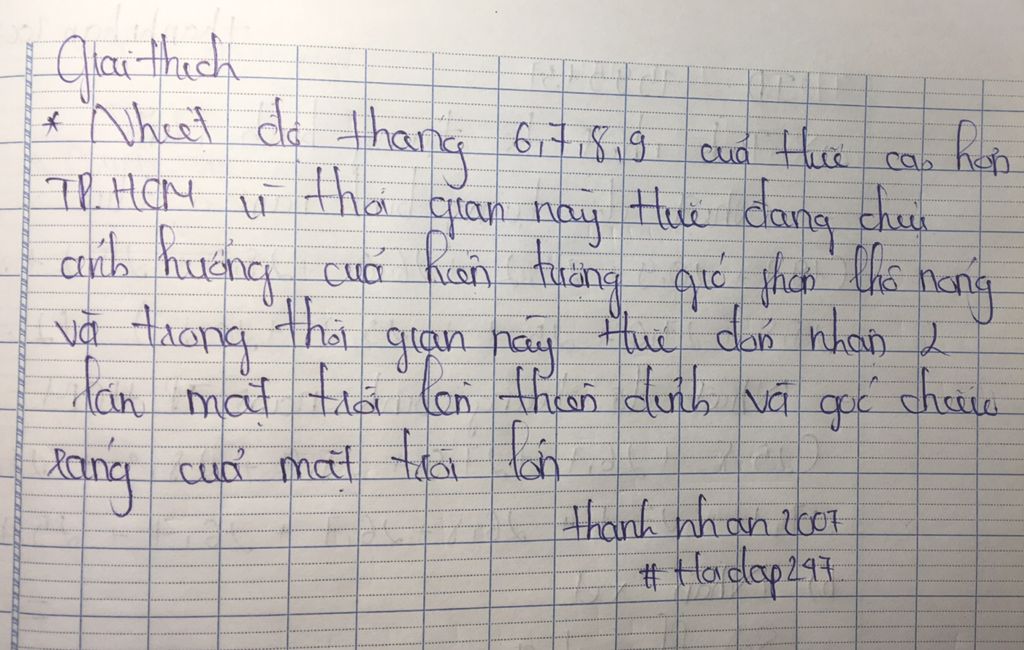 Giải thích
* Nhiệt độ tháng 6,7,8,9 của Huế cao hơn
TP.HCM vì thời gian này Huế đang chịu
ảnh hưởng của hiện tượng gió phơn khô nóng
và trong thời gian này Huế đón nhận 2
lần mặt trời lên thiên đỉnh và góc chiếu
sáng của mặt trời lớn
thanh nhan 2007
# Hoidap247